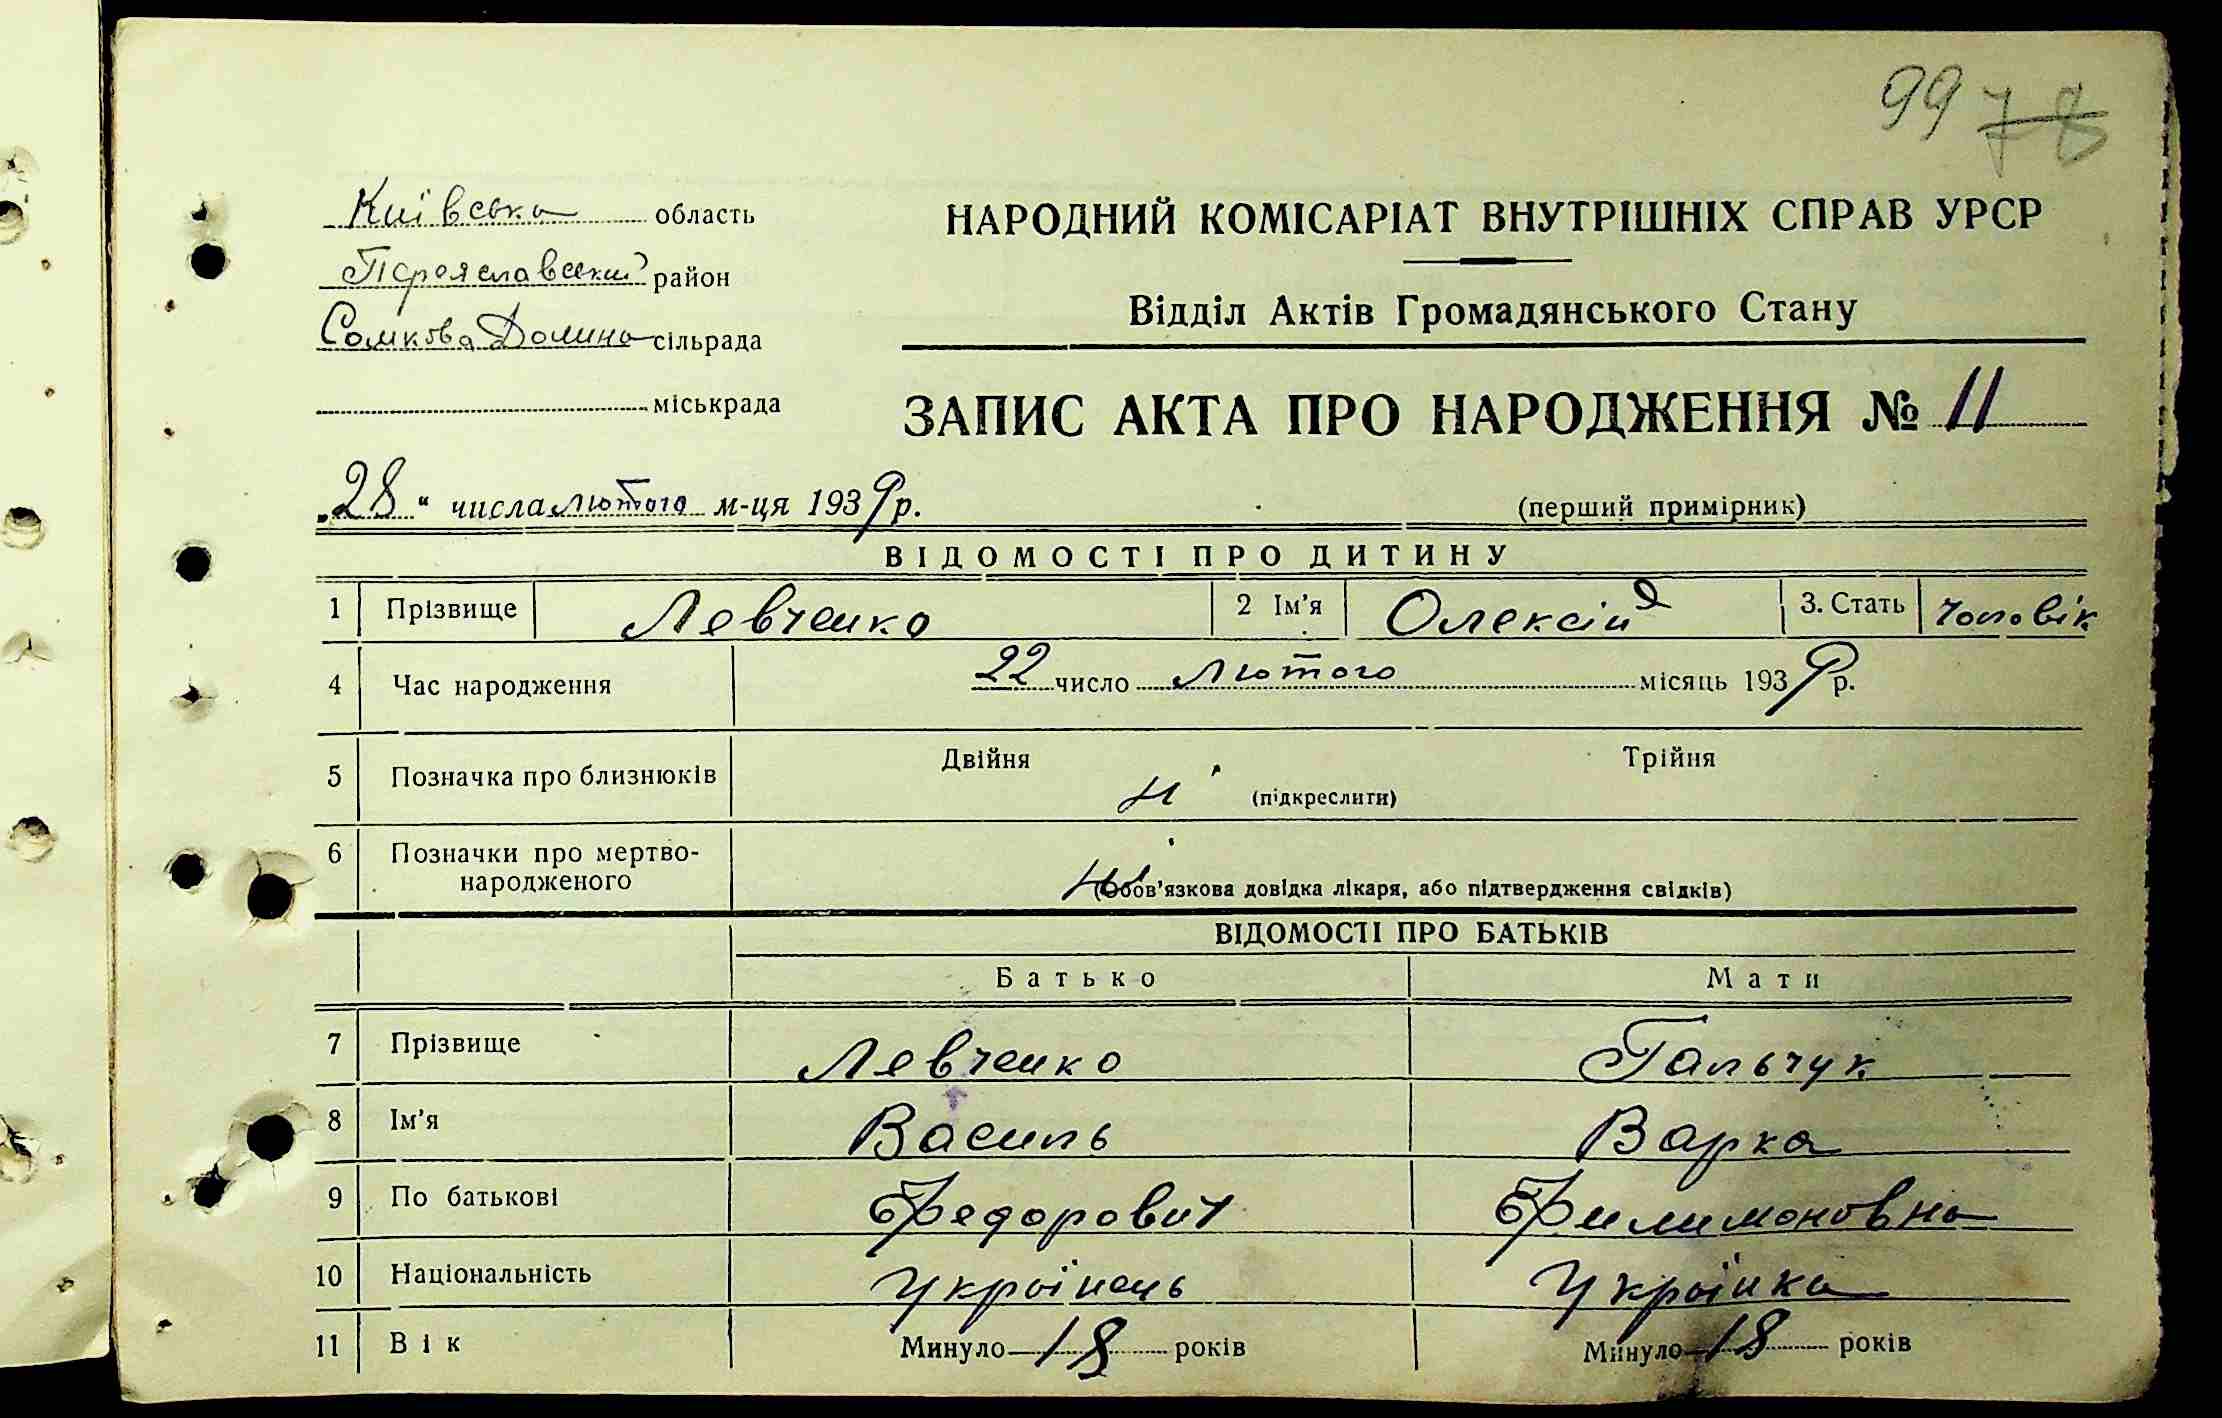 99 78
Київська область
Переяславський район
Сомкова Долина сільрада
міськрада
НАРОДНИЙ КОМІСАРІАТ ВНУТРІШНІХ СПРАВ УРСР
Відділ Актів Громадянського Стану
ЗАПИС АКТА ПРО НАРОДЖЕННЯ № 11
„28“ числа лютого м-ця 1939 р.
(перший примірник)
ВІДОМОСТІ ПРО ДИТИНУ
1 Прізвище Левченко 2 Ім’я Олексій 3. Стать чоловік
4 Час народження 22 число лютого місяць 1939 р.
5 Позначка про близнюків Двійня Трійня
ні (підкреслити)
6 Позначки про мертво-
народженого ні (Обов’язкова довідка лікаря, або підтвердження свідків)
ВІДОМОСТІ ПРО БАТЬКІВ
Батько Мати
7 Прізвище Левченко Гальчук
8 Ім’я Василь Варка
9 По батькові Федорович Филимоновна
10 Національність Українець Українка
11 Вік Минуло 18 років Минуло 18 років